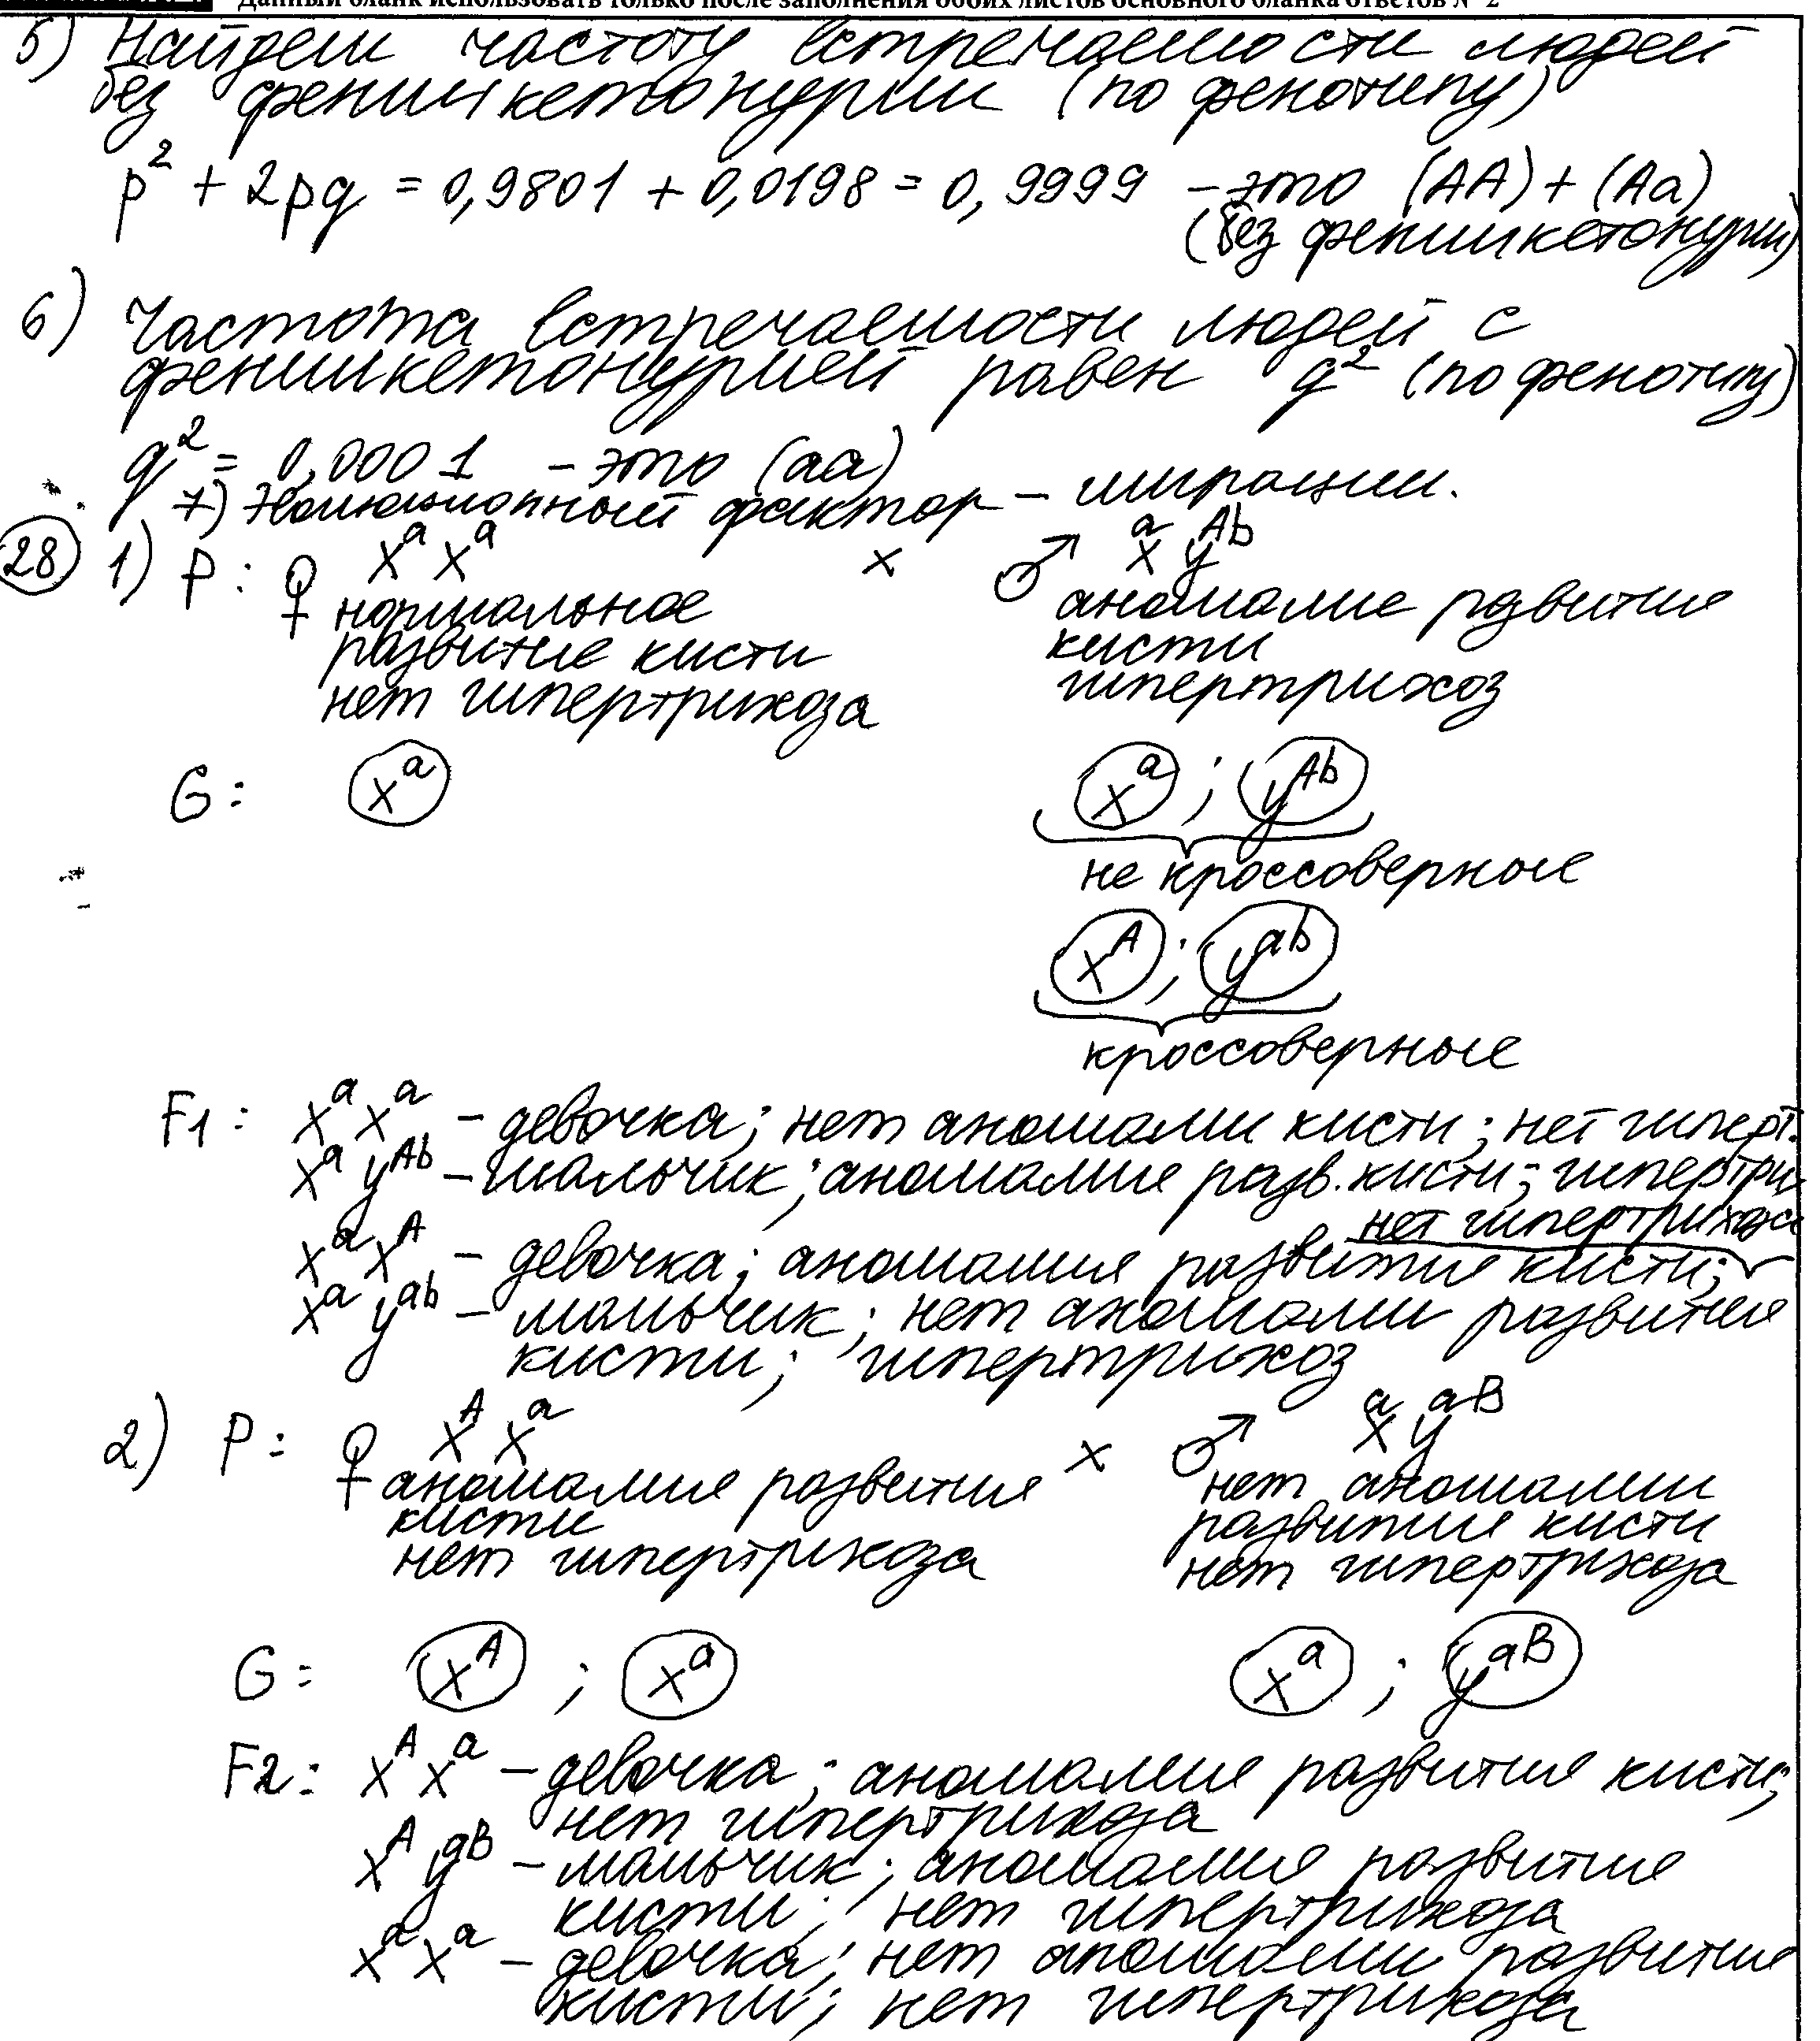 Данный бланк использовать только после заполнения обоих листов основного бланка ответов № 2
5) Найдем частоту встречаемости людей
без фенилкетонурии (по фенотипу)
p² + 2pq = 0,9801 + 0,0198 = 0,9999 – это (AA) + (Aa)
(без фенилкетонурии)
6) Частота встречаемости людей с
фенилкетонурией равен q² (по фенотипу)
q² = 0,0001 – это (aa)
7) Эволюционный фактор – миграции.
28 1) P: ♀ XᵃXᵃ x ♂ XᵃYᴬᵇ
нормальное аномалие развития
развитие кисти кисти
нет гипертрихоза гипертрихоз
G: Xᵃ Xᵃ ; Yᴬᵇ
не кроссоверные
Xᴬ ; Yᵃᵇ
кроссоверные
F1: XᵃXᵃ – девочка; нет аномалии кисти; нет гиперт.
XᵃYᴬᵇ – мальчик; аномалие разв. кисти; гипертри
нет гипертрихоз
XᵃXᴬ – девочка; аномалия развития кисти;
XᵃYᵃᵇ – мальчик; нет аномалии развития
кисти; гипертрихоз
2) P: ♀ XᴬXᵃ x ♂ XᵃYᵃᴮ
аномалия развития нет аномалии
кисти развития кисти
нет гипертрихоза нет гипертрихоза
G: Xᴬ ; Xᵃ Xᵃ ; Yᵃᴮ
F2: XᴬXᵃ – девочка; аномалия развития кисти;
нет гипертрихоза
XᴬYᵃᴮ – мальчик; аномалия развития
кисти; нет гипертрихоза
XᵃXᵃ – девочка; нет аномалии развития
кисти; нет гипертрихоза